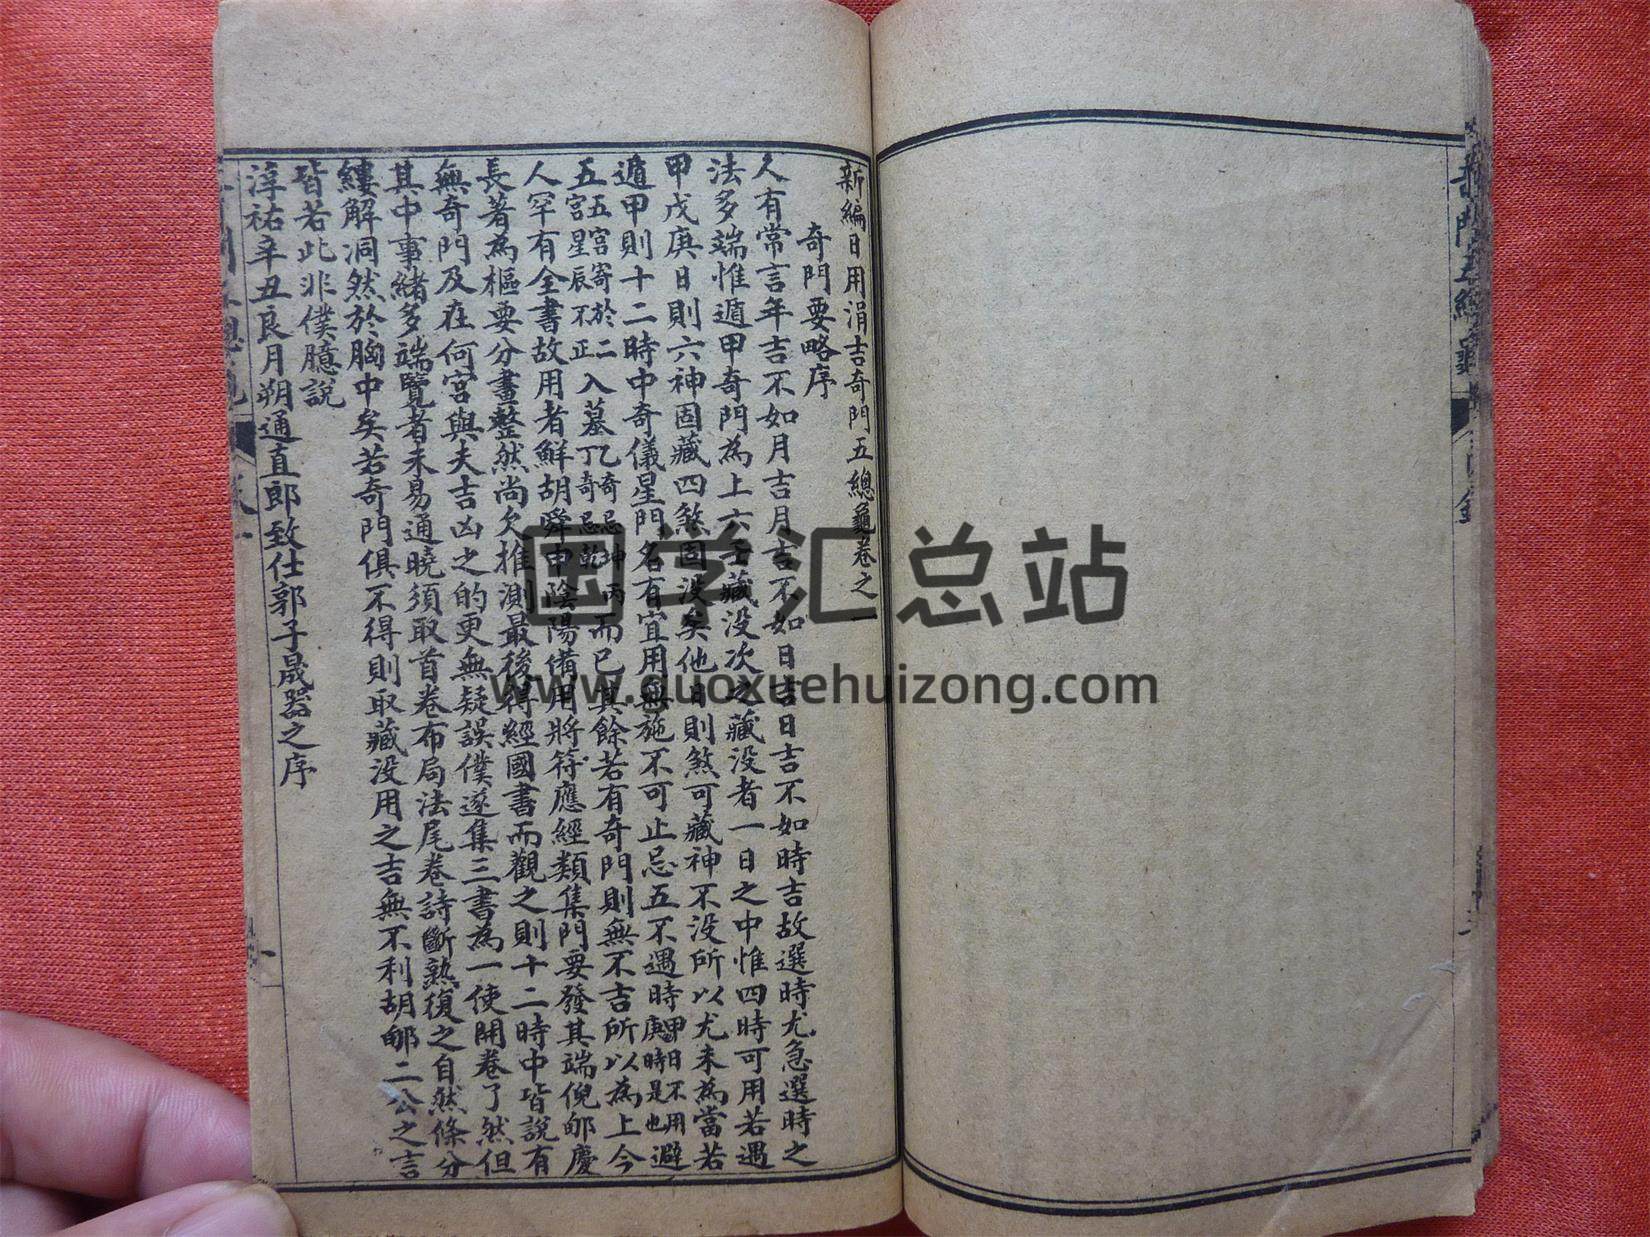 新編日用涓吉奇門五總龜卷之一
奇門要略序
人有常言年吉不如月吉月吉不如日吉日吉不如時吉故選時尤急選時之
法多端惟遁甲奇門為上六壬藏沒次之藏沒者一日之中惟四時可用若遇
甲戊庚日則六神固藏四煞固沒矣他日則煞可藏神不沒所以尤未為當若
遁甲則十二時中奇儀星門名有宜用無施不可止忌五不遇時甲日不用庚時是也避
五宮五宮寄於二星辰不正入墓乙奇忌坤丙丁奇忌乾而已其餘若有奇門則無不吉所以為上今
人罕有全書故用者鮮胡舜申陰陽備用將符應經類集門要發其端倪郇慶
長著為樞要分畫整然尚欠推測最後得經國書而觀之則十二時中皆說有
無奇門及在何宮與夫吉凶之的更無疑誤僕遂集三書為一使開卷了然但
其中事緒多端覽者未易通曉須取首卷布局法尾卷詩斷熟復之自然條分
縷解洞然於胸中矣若奇門俱不得則取藏沒用之吉無不利胡郇二公之言
皆若此非僕臆說
淳祐辛丑良月朔通直郎致仕郭子晟器之序
国学汇总站
www.guoxuehuizong.com